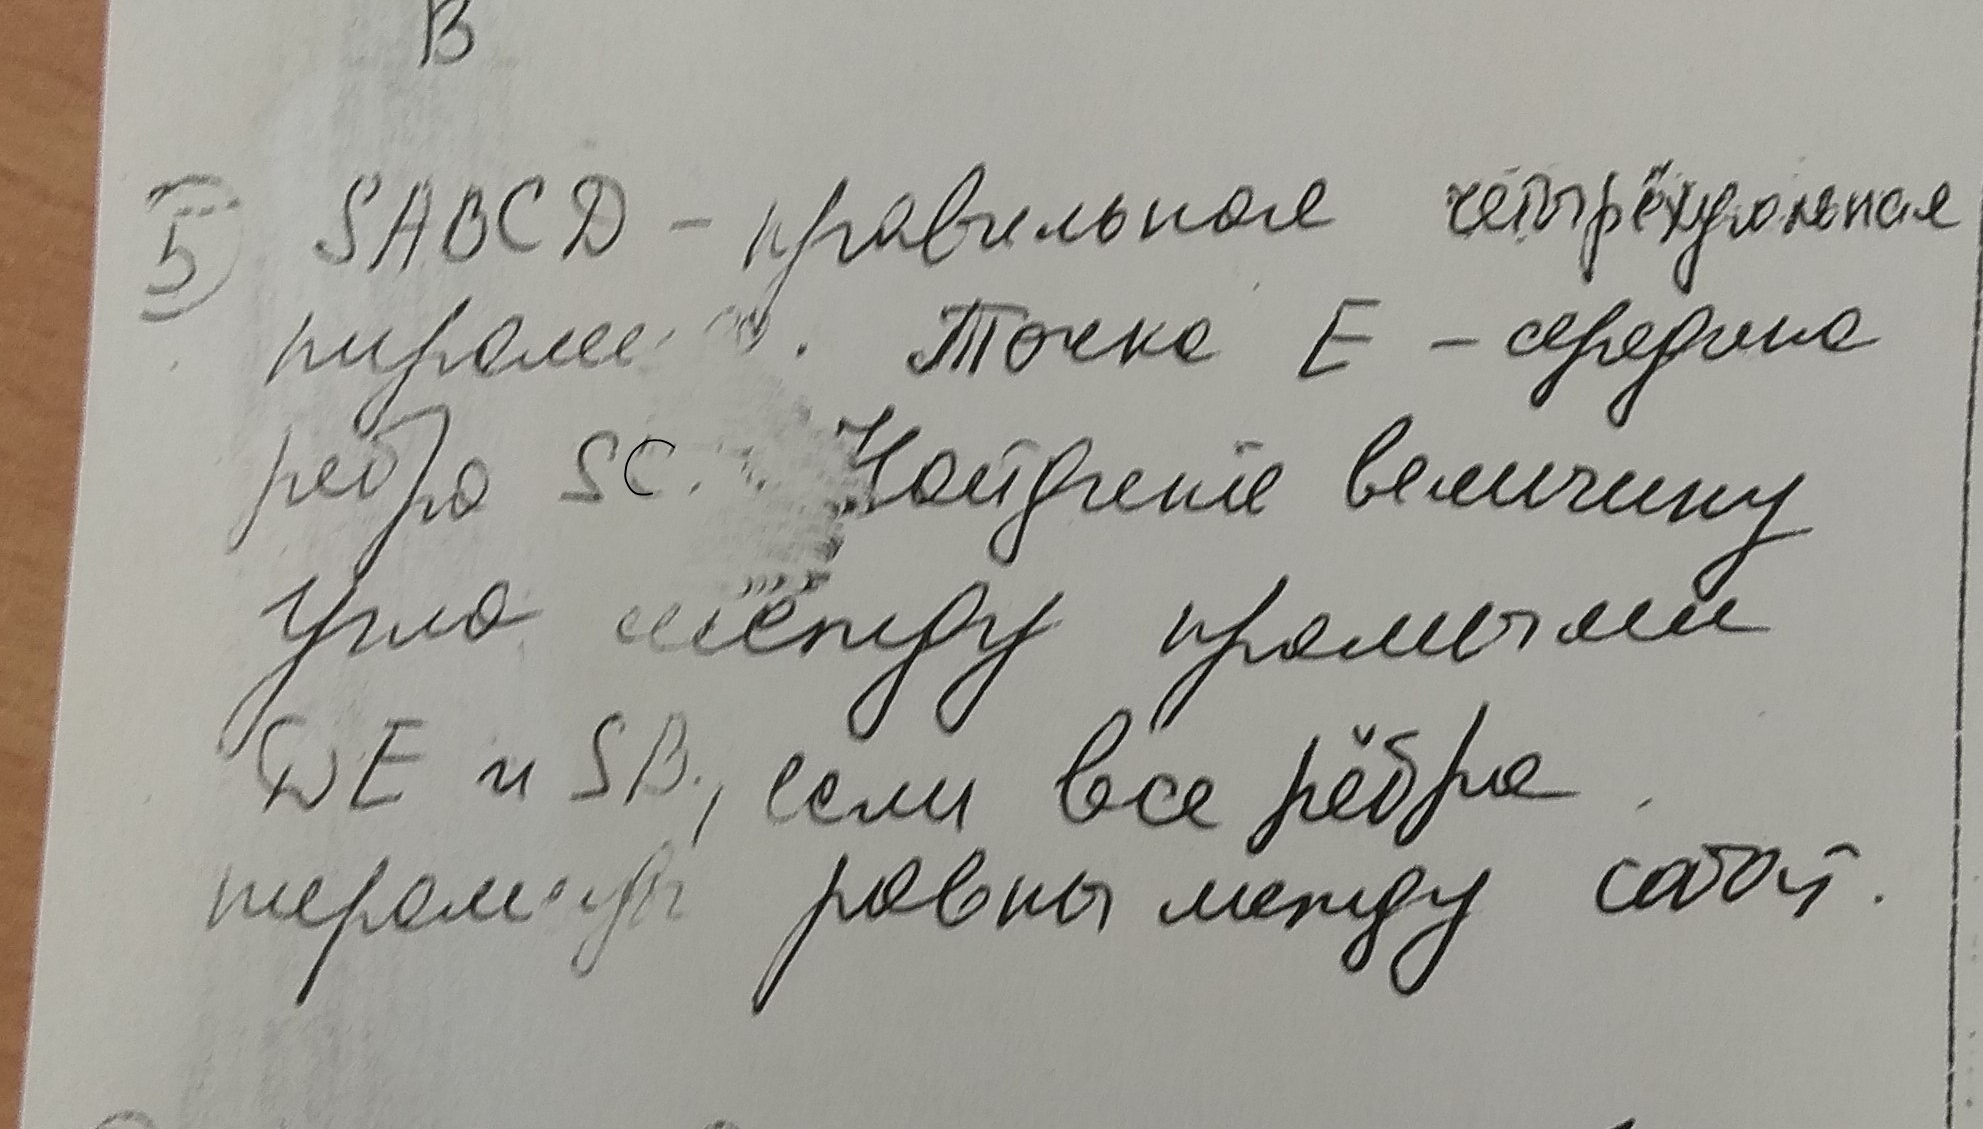 В
5 SABCD – правильная четырёхугольная
пирами . Точка E – середина
ребра SC. Найдите величину
угла между прямыми
DE и SB, если все рёбра
пирамиды равны между собой.